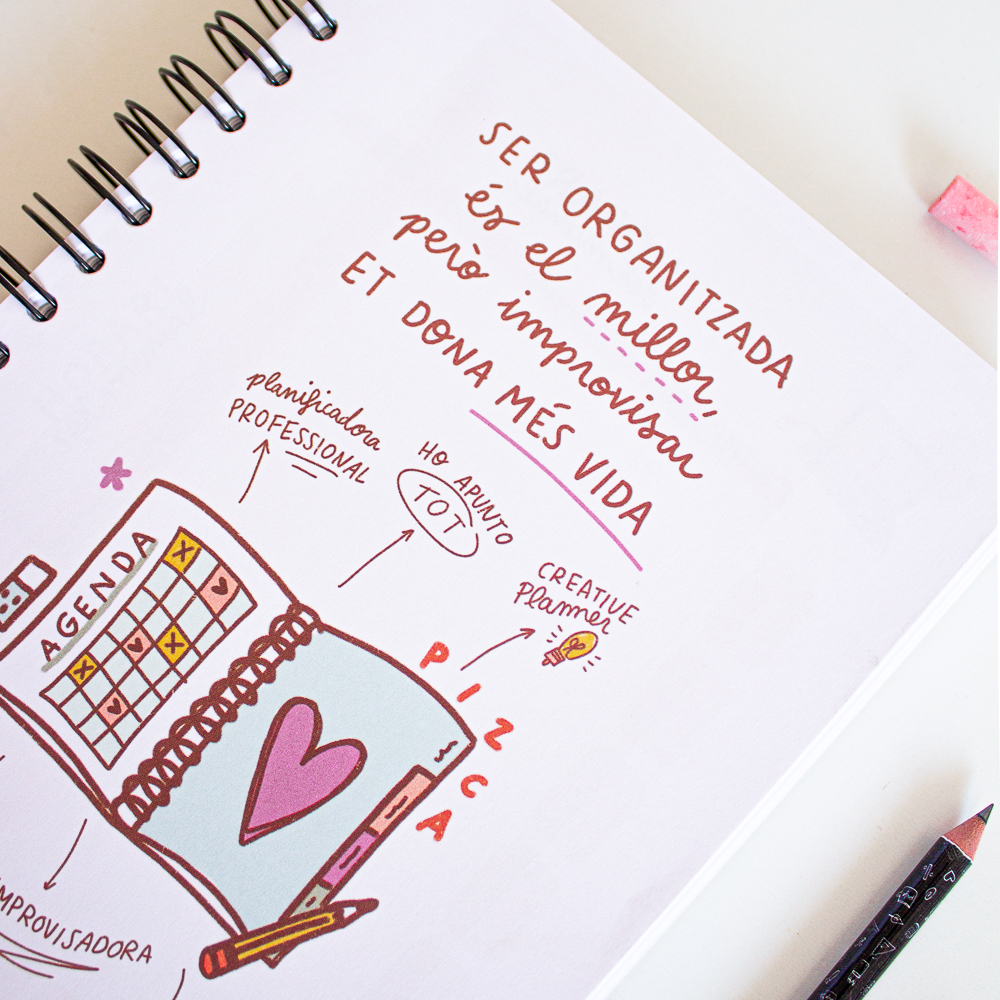 SER ORGANITZADA
és el millor,
però improvisar
ET DONA MÉS VIDA
planificadora
PROFESSIONAL
HO APUNTO
TOT
CREATIVE
Planner
AGENDA
PIZCA
IMPROVISADORA